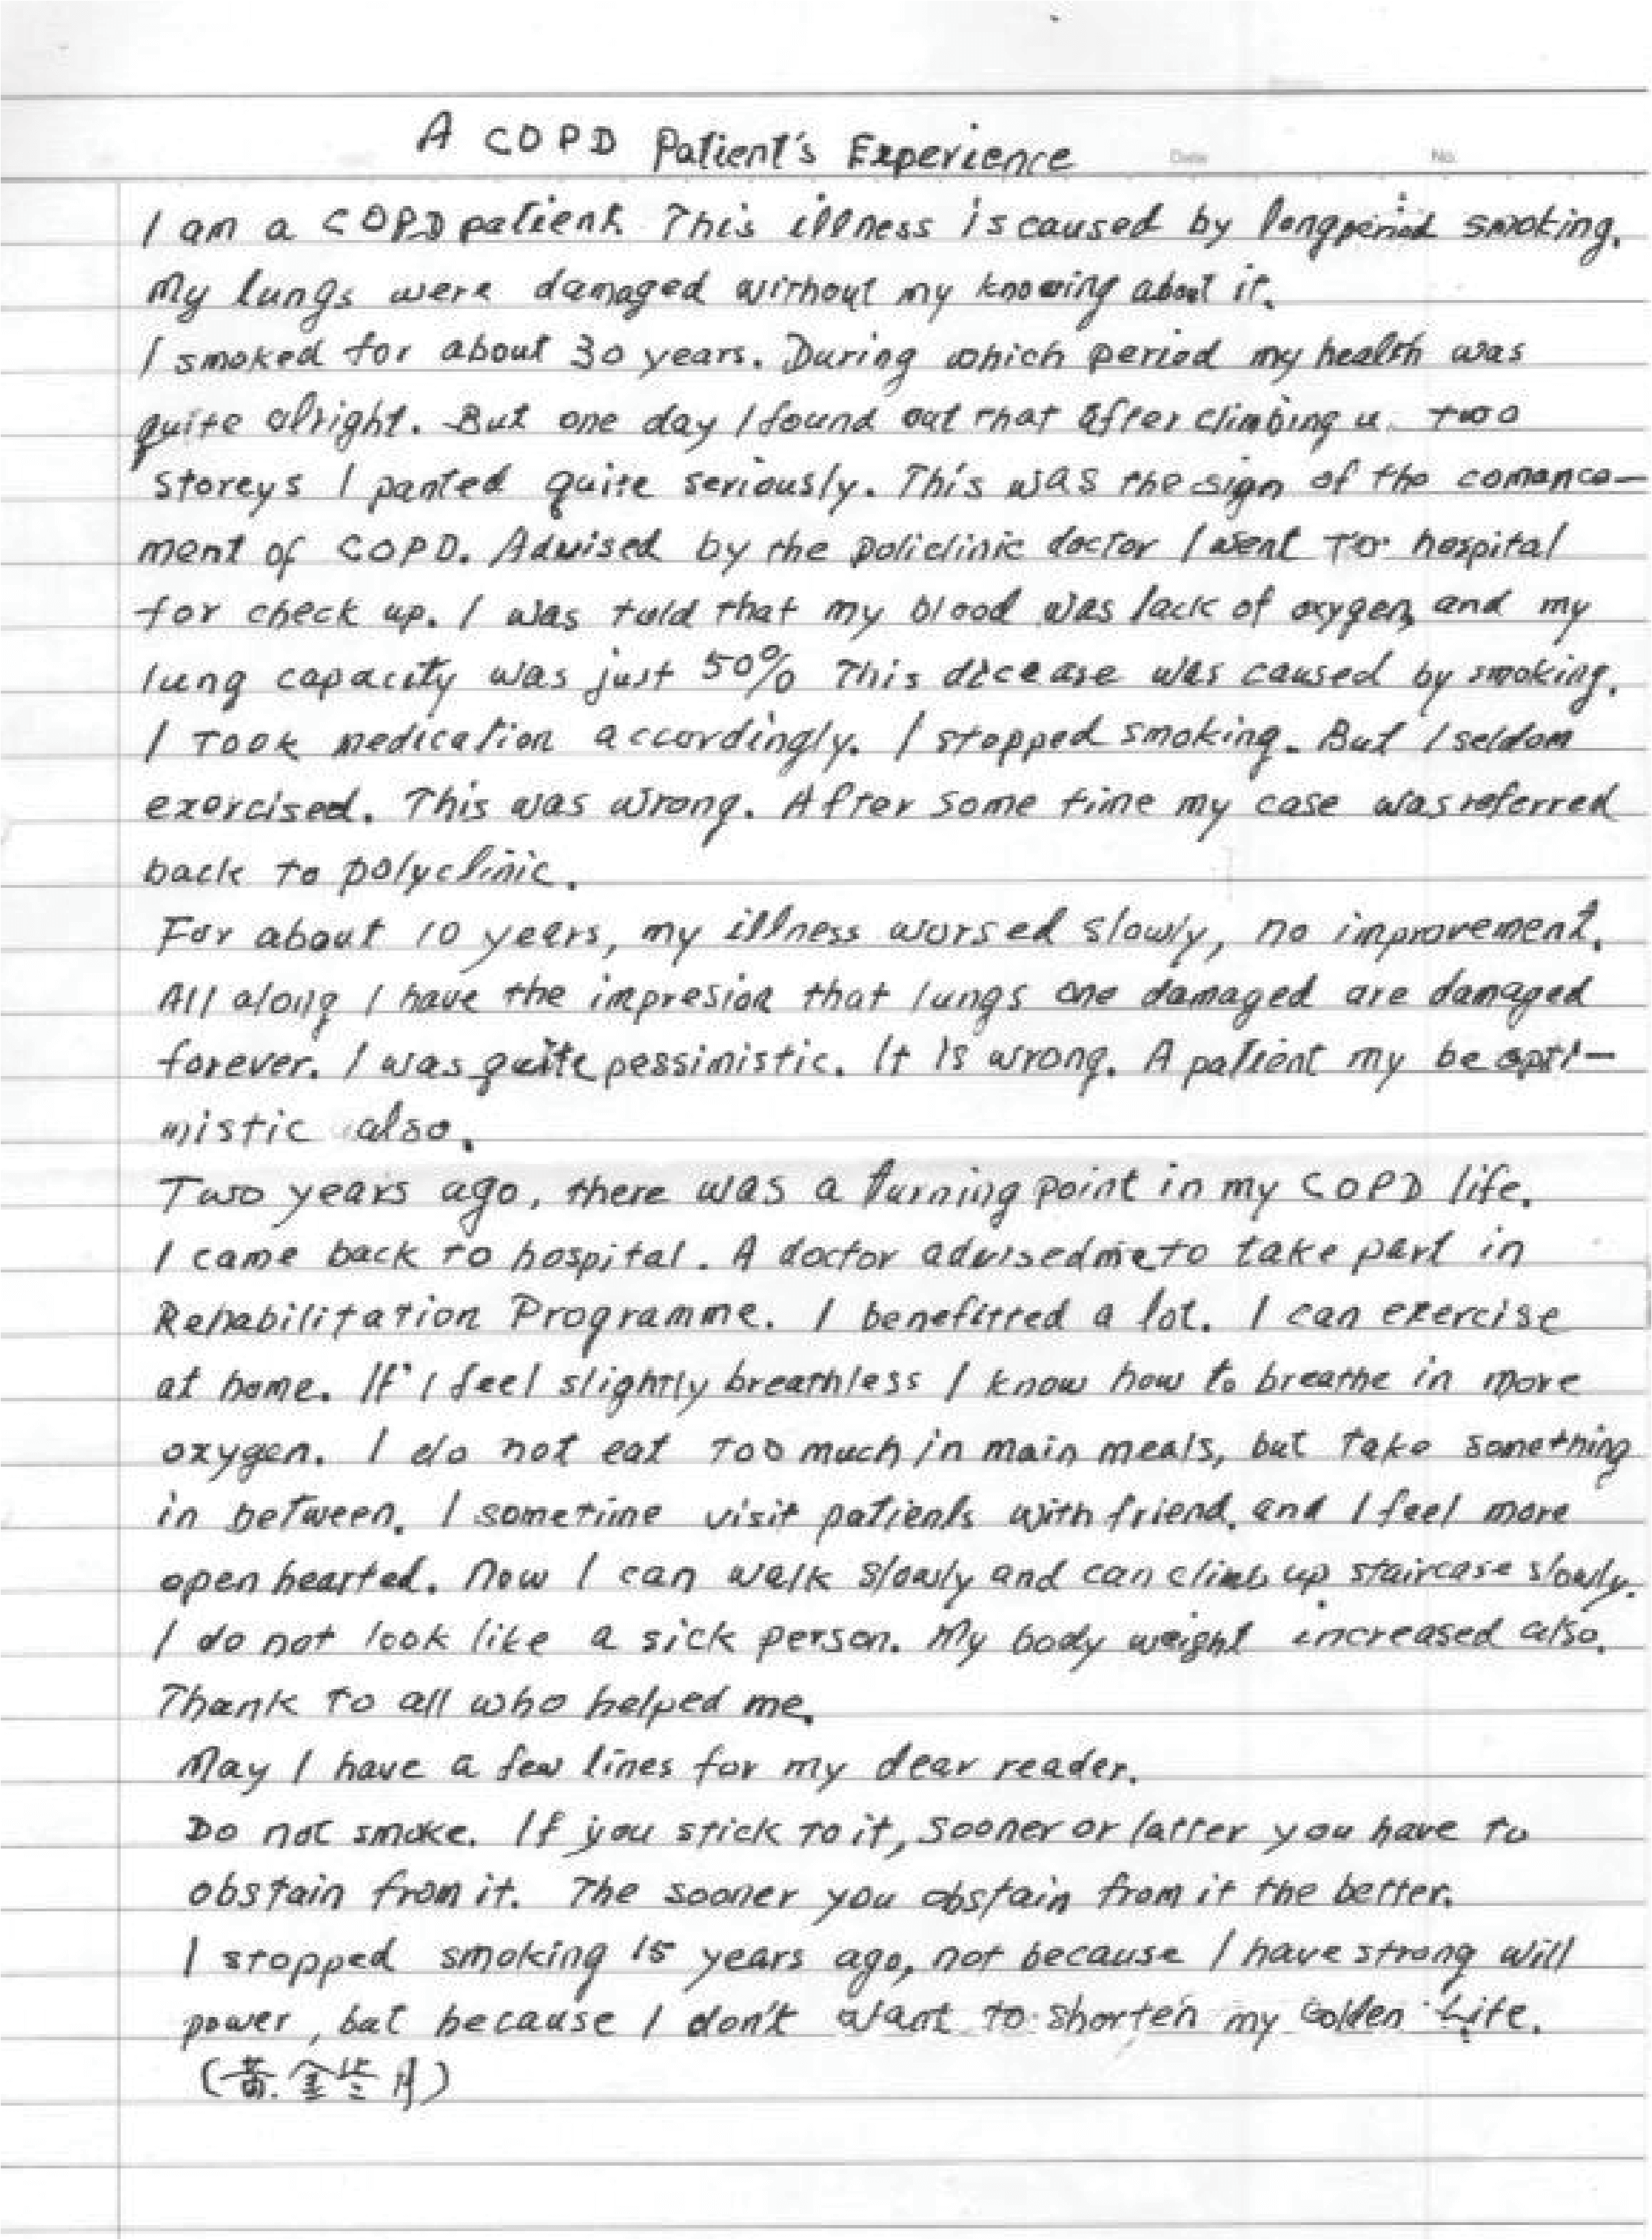 A COPD Patient's Experience
Date No.
I am a COPD patient. This illness is caused by long period smoking.
My lungs were damaged without my knowing about it.
I smoked for about 30 years. During which period my health was
quite alright. But one day I found out that after climbing u two
storeys I panted quite seriously. This was the sign of the comance-
ment of COPD. Adviised by the policlinic doctor I went to hospital
for check up. I was told that my blood was lack of oxygen, and my
lung capacity was just 50% This dicease was caused by smoking.
I took medication accordingly. I stopped smoking. But I seldom
exercised. This was wrong. After some time my case was referred
back to polyclinic.
For about 10 years, my illness worsed slowly, no improvement.
All along I have the impresion that lungs one damaged are damaged
forever. I was quite pessimistic. It is wrong. A patient my be opti-
mistic also.
Two years ago, there was a turning point in my COPD life.
I came back to hospital. A doctor advised me to take part in
Rehabilitation Programme. I benefitted a lot. I can exercise
at home. If I feel slightly breathless I know how to breathe in more
oxygen. I do not eat too much in main meals, but take something
in between. I sometime visit patients with friend. and I feel more
open hearted. Now I can walk slowly and can climb up staircase slowly.
I do not look like a sick person. My body weight increased also.
Thank to all who helped me.
May I have a few lines for my dear reader.
Do not smoke. If you stick to it, sooner or latter you have to
obstain from it. The sooner you obstain from it the better.
I stopped smoking 15 years ago, not because I have strong will
power, but because I don't want to shorten my Golden Life.
(黄金岁月)